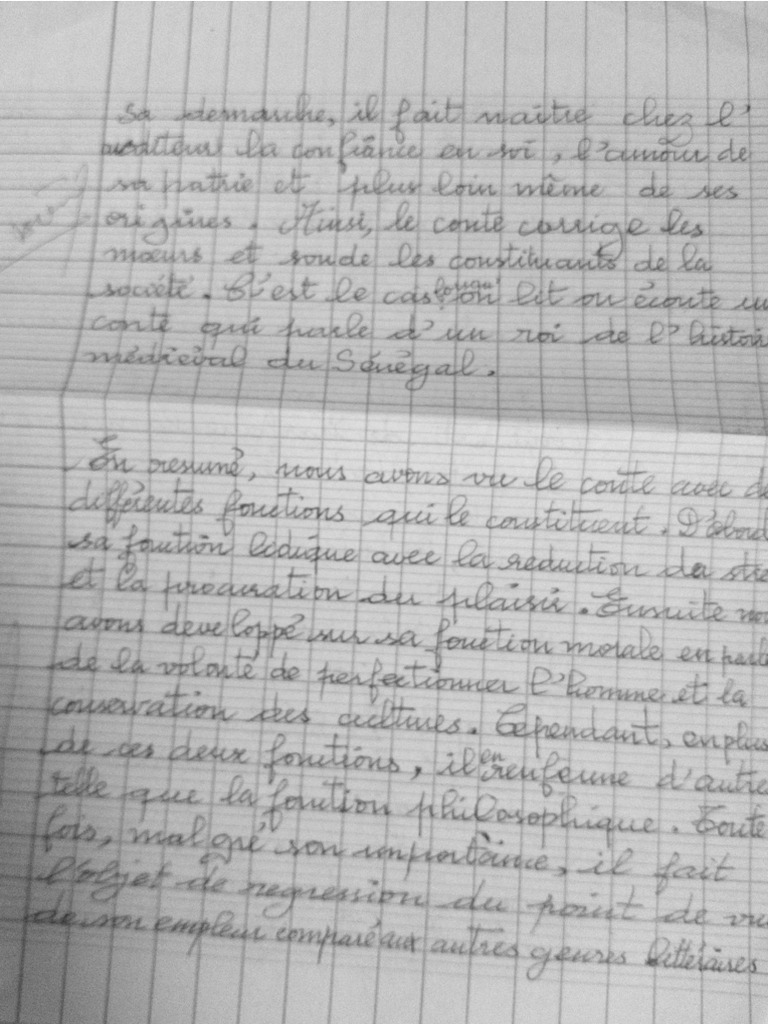 sa demarche, il fait naitre chez l'
auditeur la confiance en soi, l'amour de
sa patrie et plus loin même de ses
origines. Ainsi, le conte corrige les
mœurs et soude les constituants de la
société. C'est le cas lorsqu'on lit ou écoute un
conte qui parle d'un roi de l'histoi
médiéval du Sénégal.
En resumé, nous avons vu le conte avec de
différentes fonctions qui le constituent. D'abord
sa fonction ludique avec la reduction du stre
et la procuration du plaisir. Ensuite nou
avons developpé sur sa fonction morale en parla
de la volonté de perfectionner l'homme et la
conservation des cultures. Cependant, en plus
de ces deux fonctions, il en renferme d'autre
telle que la fonction philosophique. Toute
fois, malgré son importance, il fait
l'objet de regression du point de vu
de son empleur comparé aux autres genres littéraires